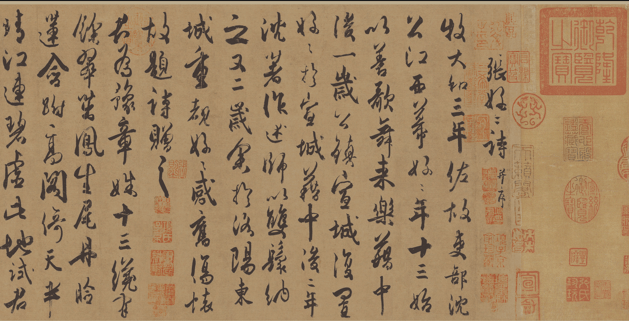 乾隆御覽之寶
張好〻詩 并序
牧大和三年佐故吏部沈
公江西幕好〻年十三始
以善歌舞來樂籍中
後一歲公鎮宣城復置
好〻於宣城籍中後二年
沈著作述師以雙鬟納
之又二歲余於洛陽東
城重覩好〻感舊傷懷
故題詩贈之
君為豫章姝十三纔有
餘翠茁鳳生尾丹臉
蓮含跗高閣倚天半
晴江連碧虛此地試君